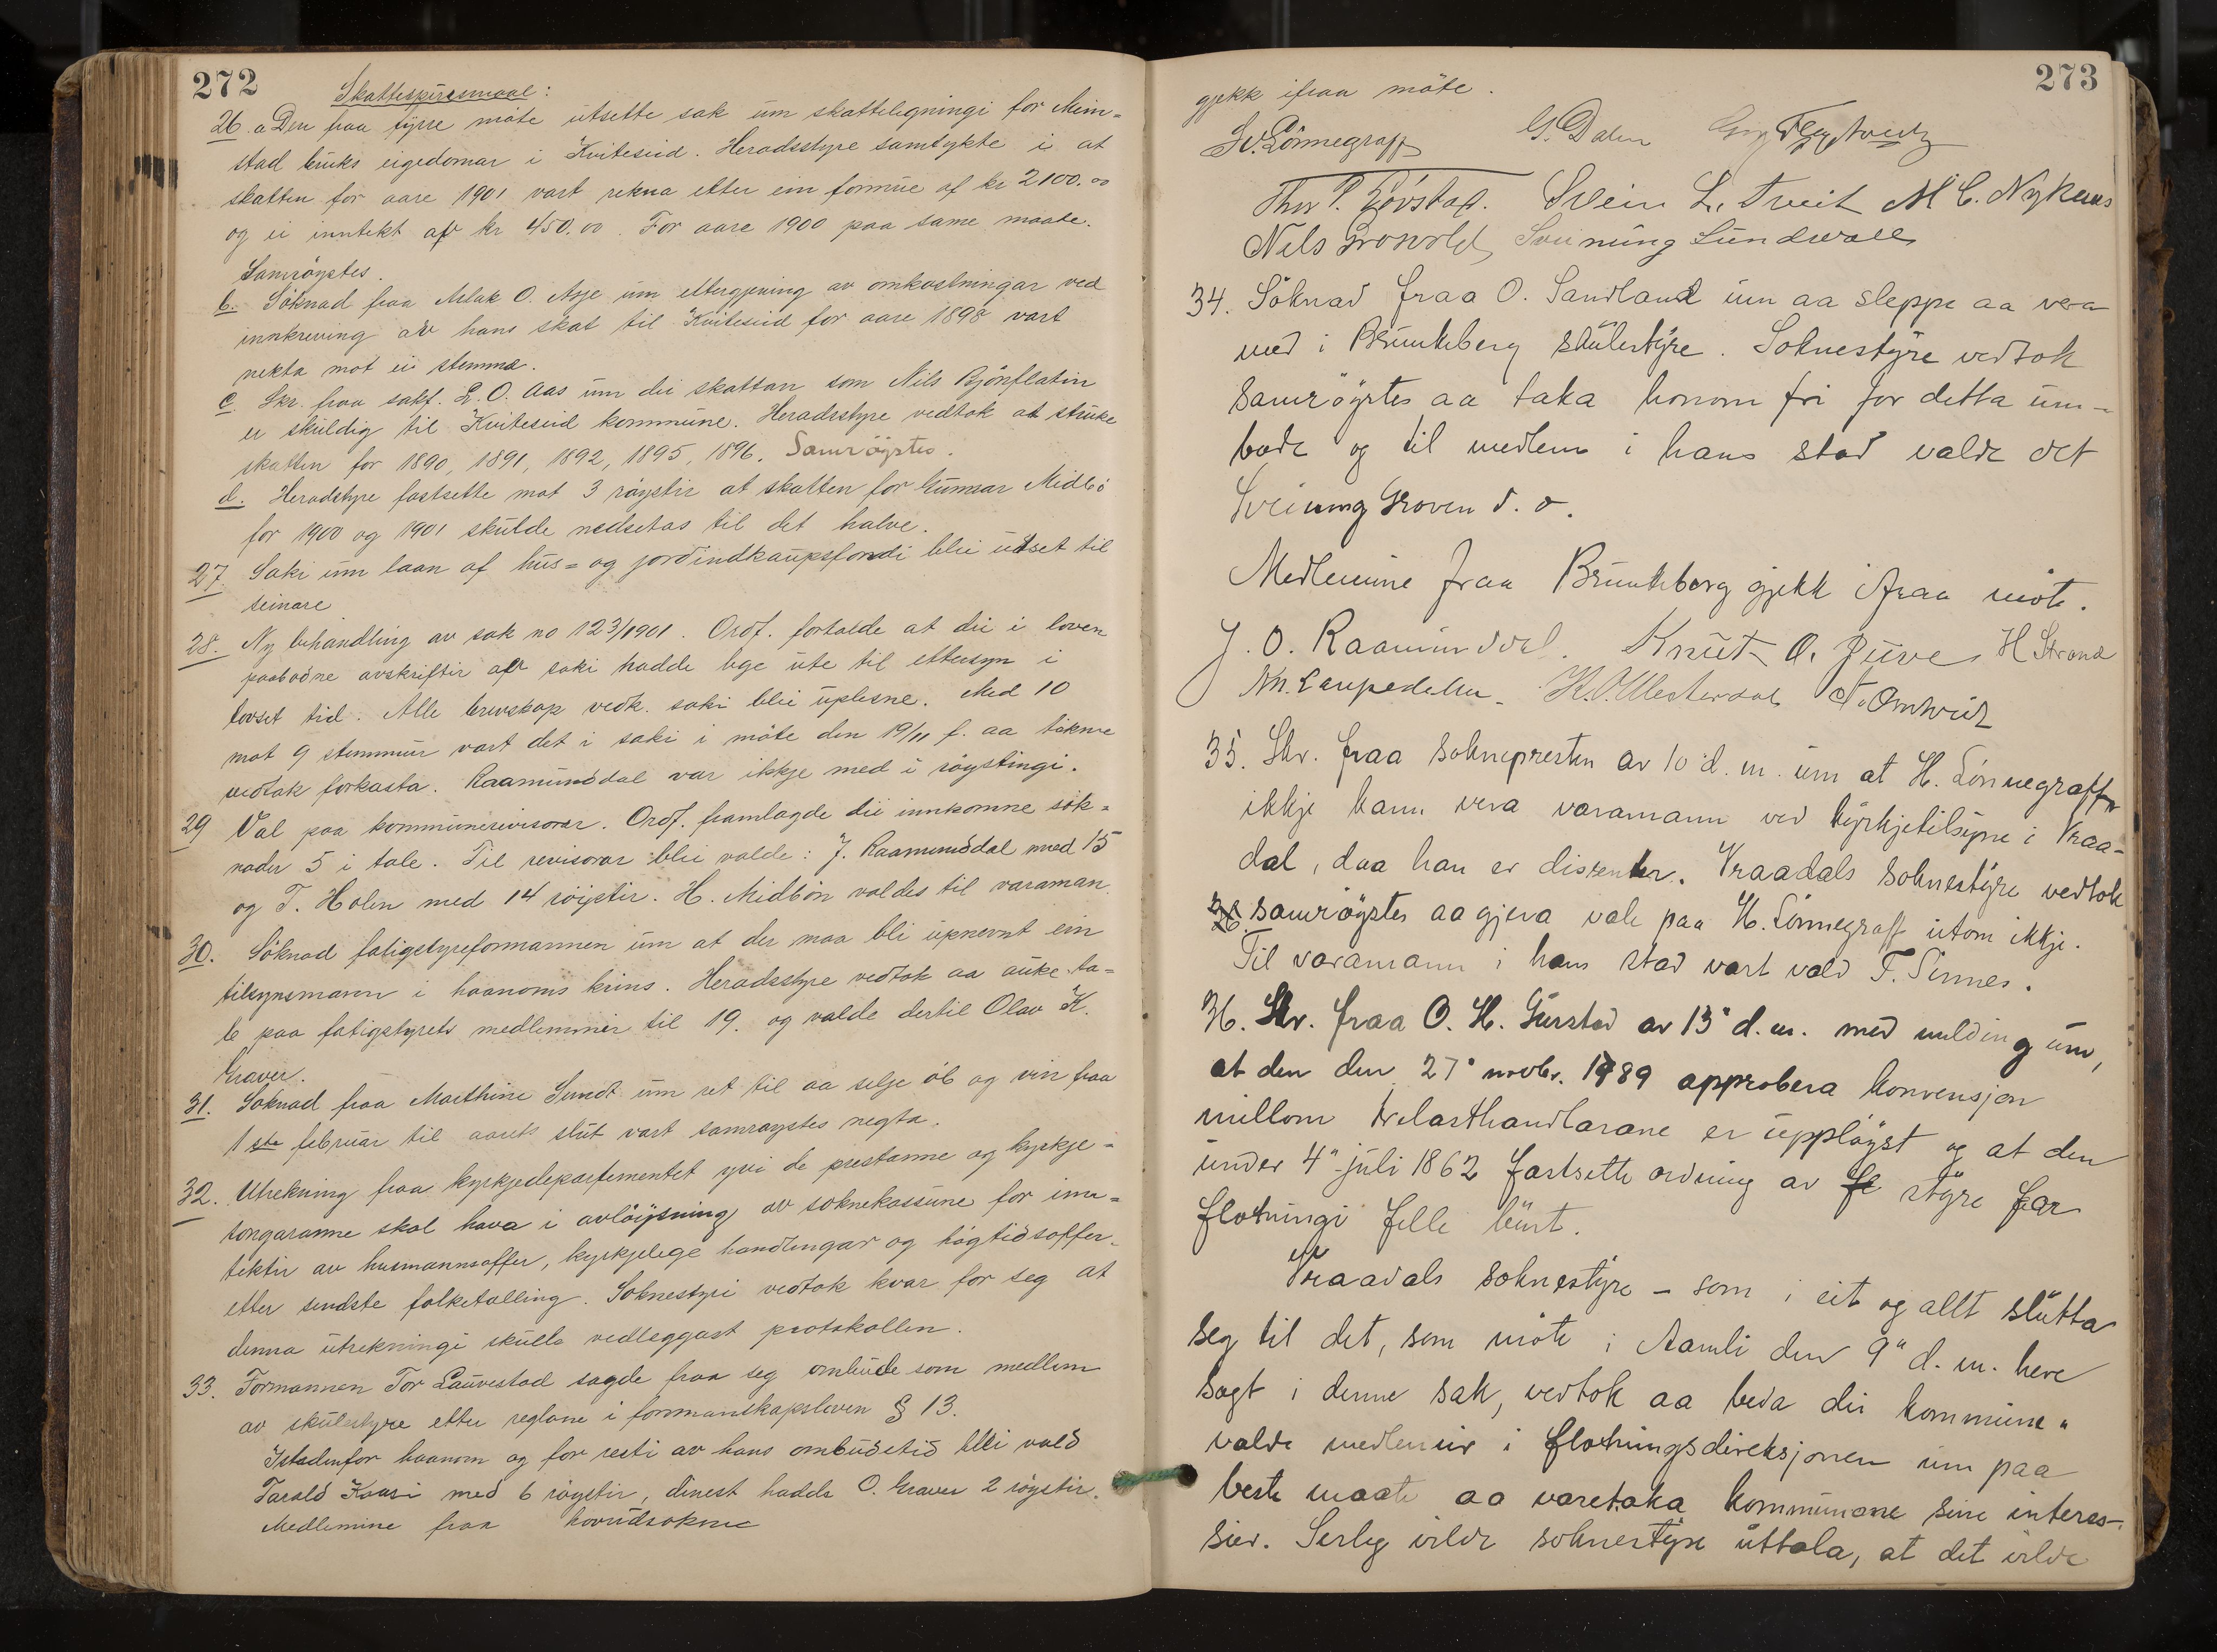 272
Skattespursmaal:
26. a Den fraa fyrre möte utsette sak um skattelegningi for Mim=
stad bruks eigedomar i Kviteseid. Heradsstyre samtykte i at
skatten for aare 1901 vart rekna etter ein formue af kr 2100.00
og ei inntekt af kr 450.00. For aare 1900 paa same maate.
Samröystes.
b. Söknad fraa Aslak O. Asje um eltergjeving av omkostningar ved
innkreving av hans skat til Kviteseid for aare 1898 vart
nekta mot ei stemma.
c Skr. fraa sakf. L. O. Aas um dei skattan som Nils Bjönflatin
er skuldig til Kviteseid kommune. Heradsstyre vedtok at stuke
skatten for 1890, 1891, 1892, 1895, 1896. Samröystes.
d. Heradstyre fastsette mot 3 röystir at skatten for Gunnar Midbö
for 1900 og 1901 skulde nedsetas til det halve.
27. Saki um laan af hus= og jordindkaupsfondi blei utset til
seinare
28. Ny behandling av sak no 123/1901. Ordf. fortalde at dei i loven
paabodne avskriftir af saki hadde lege ute til ettersyn i
lovset tid. Alle brevskap vedk. saki blei uplesne. Med 10
mot 9 stemmur vart det i saki i möte den 19/11 f. aa tökne
vedtak forkasta. Raamunddal var ikkje med i röystingi.
29 Val paa kommunerevisorar. Ordf. framlagde dei innkomne sök=
nader 5 i tale. Til revisorar blei valde: J. Raamunddal med 15
og T. Holen med 14 röystir. H. Midbön valdes til varaman.
30. Söknad fatigstyreformannen um at der maa bli upnevnt ein
tilsynsmann i haanoms krins. Heradsstyre vedtok aa auke ta=
le paa fatigstyrets medlemmir til 19. og valde dertil Olav K.
Graver.
31. Söknad fraa Marthine Sundt um ret til aa selje öl og vin fraa
1ste februar til aarets slut vart samröystes negta.
32. Utrekning fraa kyrkjedepartementet yvi de prestanne og kyrkje=
songaranne skal hava i avlöysning av soknekassune for inn=
tektir av husmannsoffer, kyrkjelege handlingar og högtidsoffer
etter sendste folketalling. Soknestyri vedtok kvar for seg at
denna utrekningi skulle vedleggast protokollen.
33. Formannen Tor Lauvestad sagde fraa seg ombude som medlem
av skulestyre etter reglane i formanskapsloven § 13.
Istadenfor haanom og for resti av hans ombudstid blei vald
Tarald Kaasi med 6 röystir, dinest hadde O. Graver 2 röystir.
Medlemine fraa hovudsokne
273
gjekk ifraa möte.
Sv. Lönnegraff G. Dalen
Svein L. Tveit M C. Nykaas
Nils Sveinung Sundvall
34. Söknad fraa O. Sandland um aa sleppe aa vera
med i Brunkeberg skulestyre. Soknestyre vedtok
samröystes aa taka honom fri for detta um-
bode og til medlem i hans stad valde det
Sveinung Groven d. o.
Medlemine fraa Brunkeberg gjekk ifraa möte.
J. O. Raamunddal. Knut O. Juve H Strand
K. O. Vesterdal T. Omtveit
35. Skr. fraa soknepresten av 10 d. m. um at H. Lönnegraff
ikkje kann vera varamann ved kyrkjetilsyne i Vraa-
dal, daa han er dissenter. Vraadals soknestyre vedtok
samröystes aa gjera vale paa H. Lönnegraff utom ikkje.
Til varamann i hans stad vart vald T. Sinnes.
36. Skr. fraa O. H. Gurstad av 13 d. m. med melding um,
at den den 27 novbr. 1889 approbera konvensjon
millom trelasthandlarane er upplöyst og at den
under 4 juli 1862 fastsette ordning av styre for
flotningi felle burt.
Vraadals soknestyre – som i eit og allt slutta
seg til det, som möte i Aamli den 9 d. m. heve
sagt i denne sak, vedtok aa beda dei kommune=
valde medlemir i flotningsdireksjonen um paa
beste maate aa varetaka kommunane sine interes-
sier. Serleg vilde soknestyre uttala, at det vilde